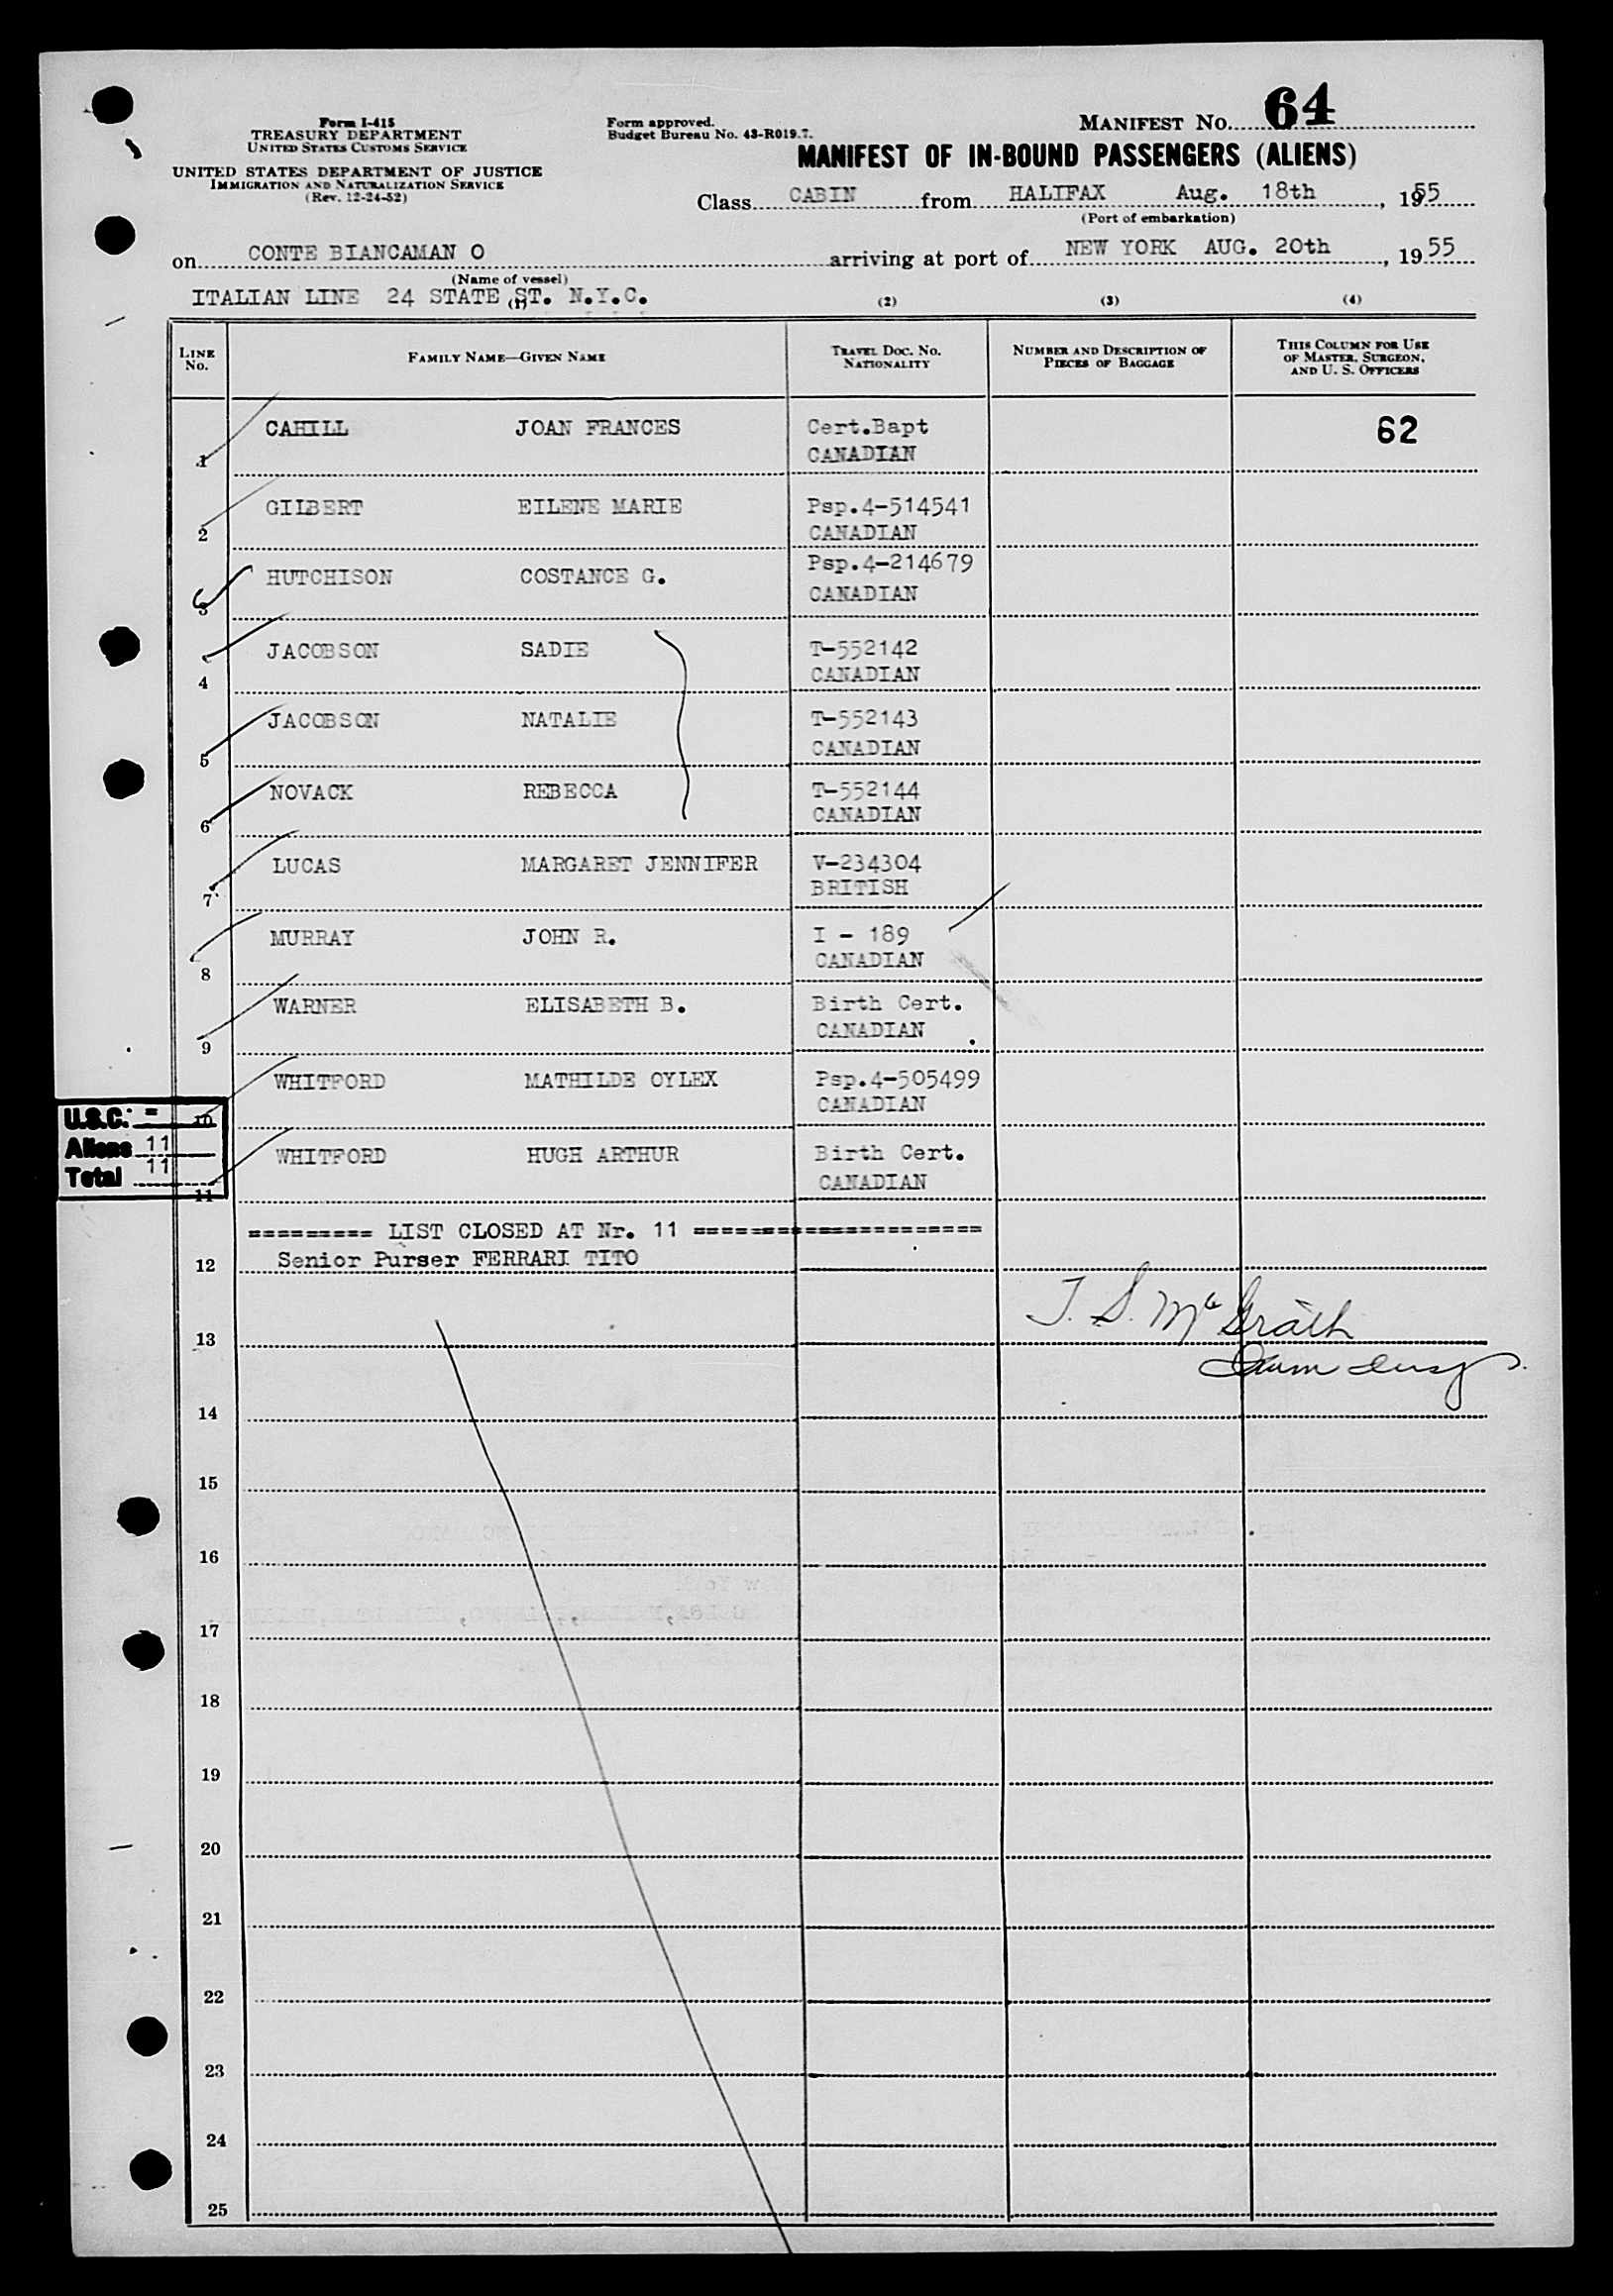 Form I-415
TREASURY DEPARTMENT
UNITED STATES CUSTOMS SERVICE
UNITED STATES DEPARTMENT OF JUSTICE
IMMIGRATION AND NATURALIZATION SERVICE
(Rev. 12-24-52)
Form approved.
Budget Bureau No. 43-R019.7.
MANIFEST No. 64
MANIFEST OF IN-BOUND PASSENGERS (ALIENS)
Class CABIN from HALIFAX Aug. 18th, 1955
(Port of embarkation)
on CONTE BIANCAMAN O arriving at port of NEW YORK AUG. 20th, 1955
(Name of vessel)
ITALIAN LINE 24 STATE ST. N.Y.C.
(1) (2) (3) (4)
LINE No. FAMILY NAME—GIVEN NAME TRAVEL DOC. NO. NATIONALITY NUMBER AND DESCRIPTION OF PIECES OF BAGGAGE THIS COLUMN FOR USE OF MASTER, SURGEON, AND U. S. OFFICERS
1 CAHILL JOAN FRANCES Cert.Bapt 62
CANADIAN
2 GILBERT EILENE MARIE Psp.4-514541
CANADIAN
3 HUTCHISON COSTANCE G. Psp.4-214679
CANADIAN
4 JACOBSON SADIE T-552142
CANADIAN
5 JACOBSON NATALIE T-552143
CANADIAN
6 NOVACK REBECCA T-552144
CANADIAN
7 LUCAS MARGARET JENNIFER V-234304
BRITISH
8 MURRAY JOHN R. I - 189
CANADIAN
9 WARNER ELISABETH B. Birth Cert.
CANADIAN
10 WHITFORD MATHILDE OYLEX Psp.4-505499
CANADIAN
U.S.C. =
Aliens 11
Total 11
11 WHITFORD HUGH ARTHUR Birth Cert.
CANADIAN
========= LIST CLOSED AT Nr. 11 =====================
12 Senior Purser FERRARI TITO
T. S. McGrath
13
14
15
16
17
18
19
20
21
22
23
24
25